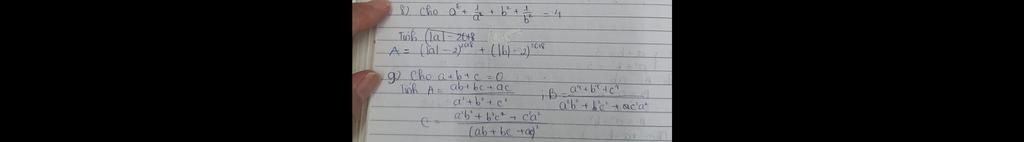 8) Cho a² + 1/a² + b² + 1/b² = 4
Tính (|a| - 2018
A = (|a| - 2)²⁰¹⁸ + (|b| - 2)²⁰¹⁸
9) Cho a + b + c = 0
Tính A = (ab + bc + ac)/(a² + b² + c²) ; B = (a⁴ + b⁴ + c⁴)/(a²b² + b²c² + c²a²)
C = (a²b² + b²c² + c²a²)/(ab + bc + ac)²